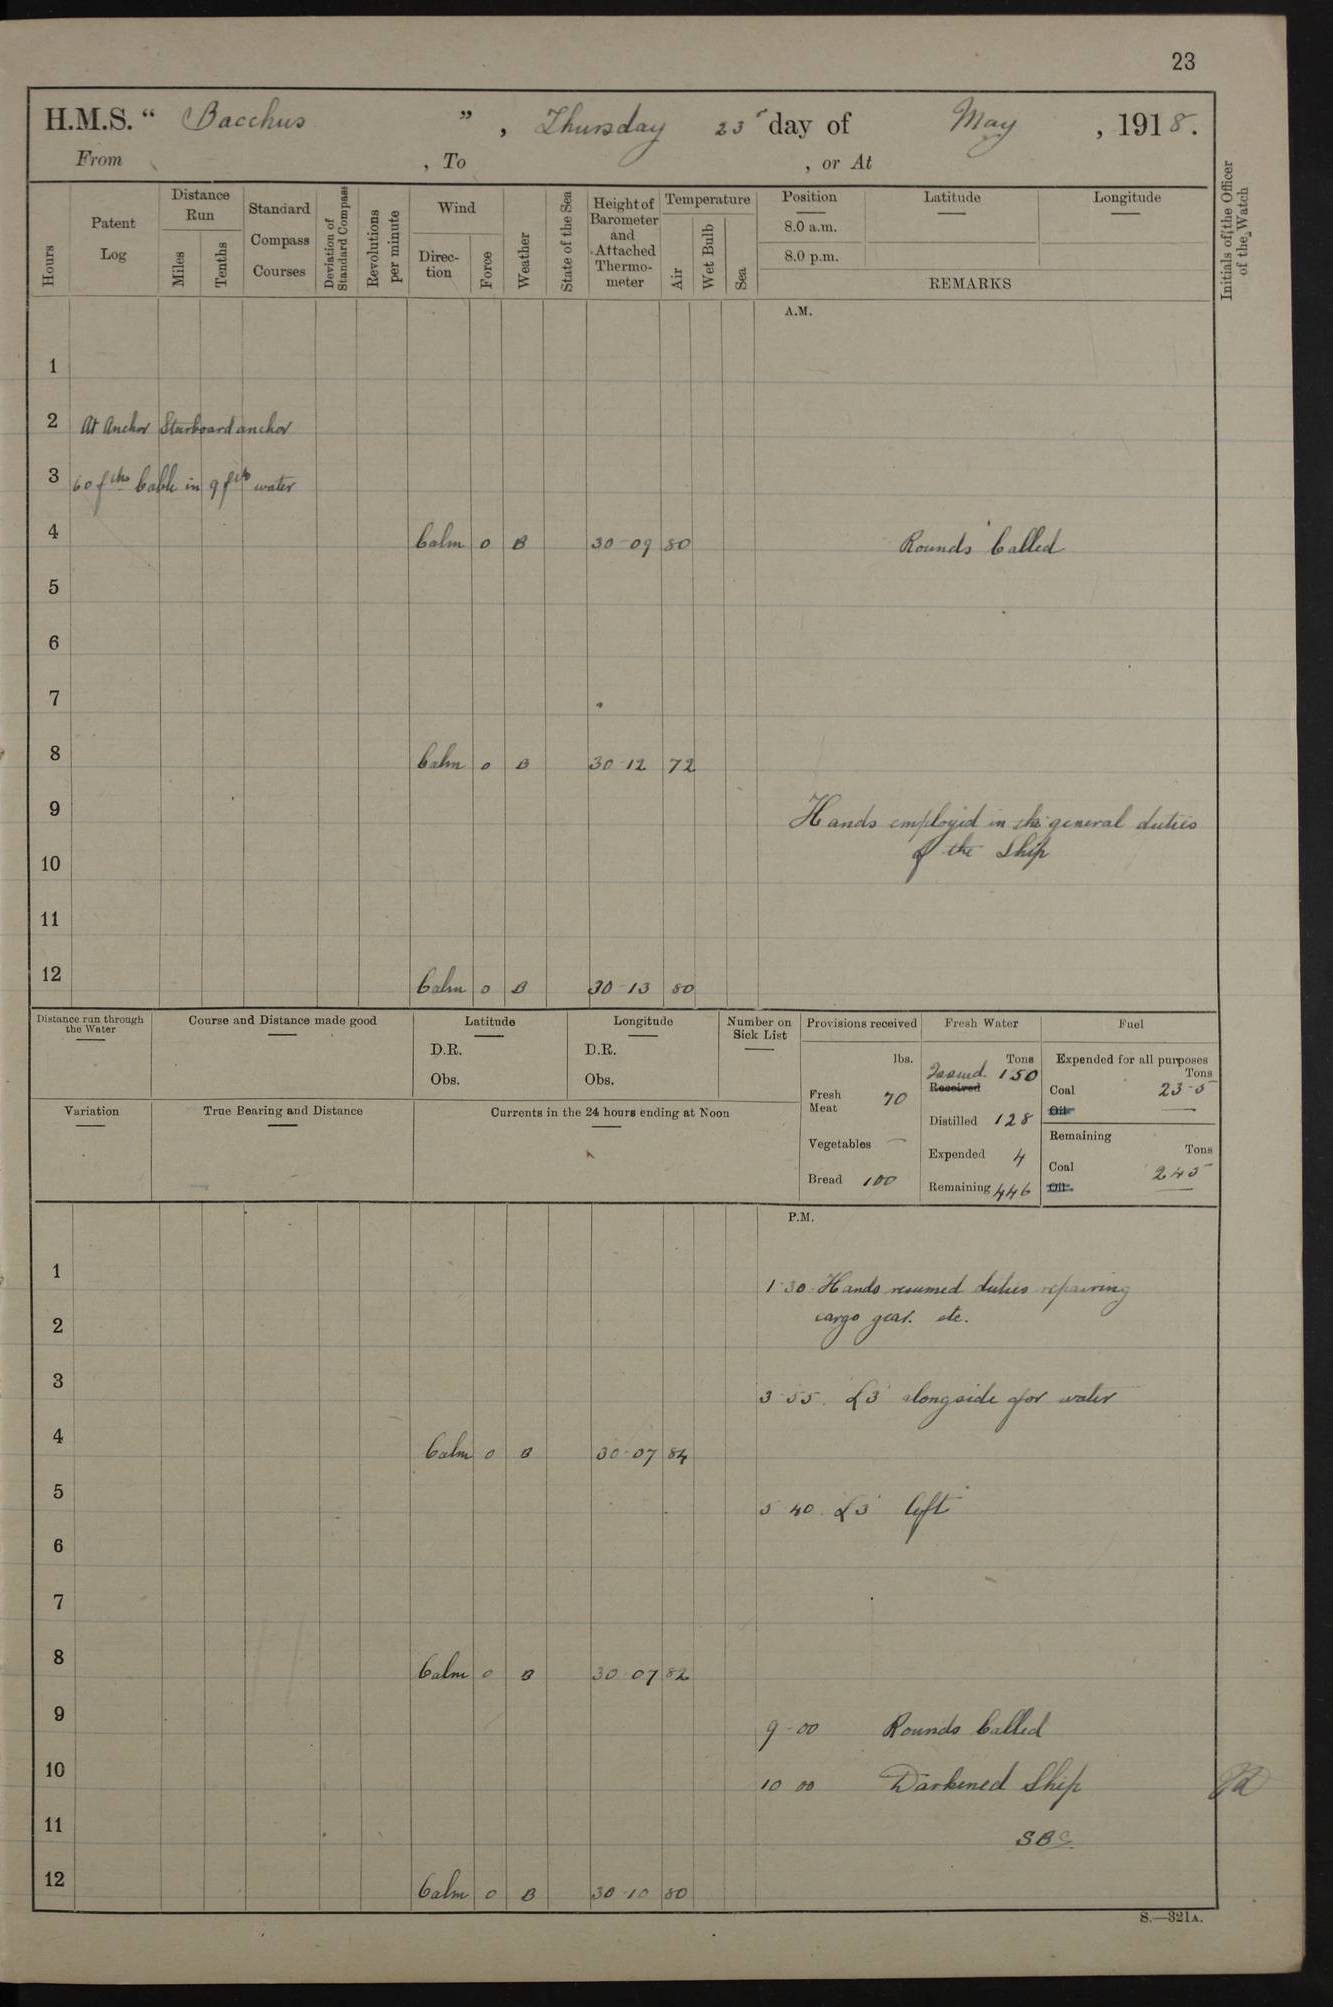 23
H.M.S. “ Bacchus ” , Thursday 23 day of May , 1918.
From , To , or At
Hours
Patent Log
Distance Run
Miles
Tenths
Standard Compass Courses
Deviation of Standard Compass
Revolutions per minute
Wind
Direc-tion
Force
Weather
State of the Sea
Height of Barometer and Attached Thermo-meter
Temperature
Air
Wet Bulb
Sea
Position
8.0 a.m.
8.0 p.m.
Latitude
Longitude
REMARKS
Initials of the Officer of the Watch
A.M.
1
2 At Anchor Starboard anchor
3 60 fths Cable in 9 fths water
4 Calm 0 B 30·09 80 Rounds Called
5
6
7
8 Calm 0 B 30·12 72
9 Hands employed in general duties
10 of the Ship
11
12 Calm 0 B 30·13 80
Distance run through the Water
Course and Distance made good
Latitude
D.R.
Obs.
Longitude
D.R.
Obs.
Number on Sick List
Variation
True Bearing and Distance
Currents in the 24 hours ending at Noon
Provisions received
lbs.
Fresh Meat 70
Vegetables —
Bread 100
Fresh Water
Tons
Issued 150
Received
Distilled 128
Expended 4
Remaining 446
Fuel
Expended for all purposes
Tons
Coal 23·5
Oil —
Remaining
Tons
Coal 245
Oil —
P.M.
1 1·30 Hands resumed duties repairing
2 cargo gear. etc.
3 3·55 L3 alongside for water
4 Calm 0 B 30·07 84
5 5·40 L3 left
6
7
8 Calm 0 B 30·07 82
9 9·00 Rounds Called
10 10·00 Darkened Ship
11 SBS
12 Calm 0 B 30·10 80
S.—321A.